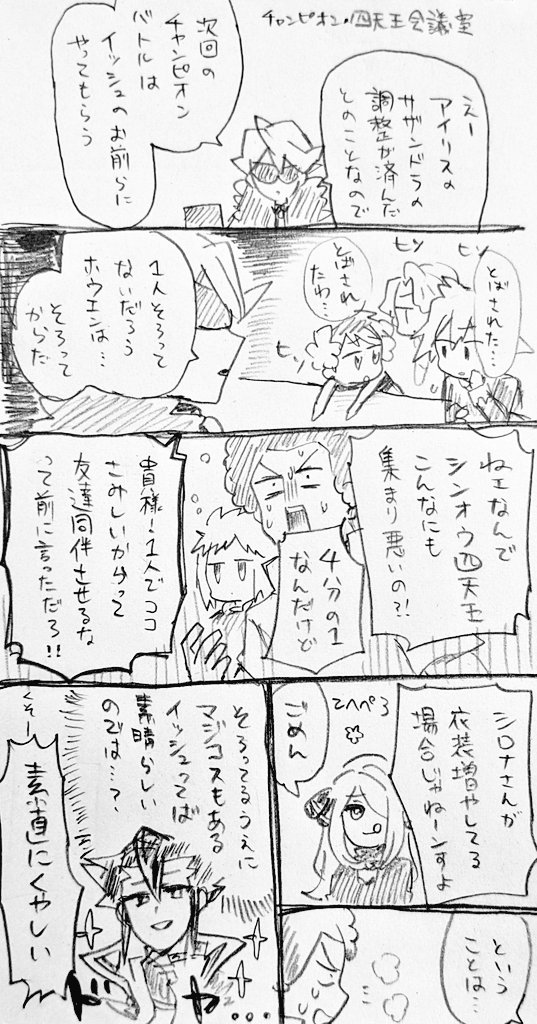 チャンピオン・四天王会議室
えー
アイリスの
サザンドラの
調整が済んだ
とのことなので
次回の
チャンピオン
バトルは
イッシュのお前らに
やってもらう
ヒソ
ヒソ
とばされた…
とばされ
たわ…
ヒソ
1人そろって
ないだろう
ホウエンは…
そろって
からだ
ねェなんで
シンオウ四天王
こんなにも
集まり悪いの?!
4分の1
なんだけど
貴様!1人でココ
さみしいからって
友達同伴させるな
って前に言っただろ!!
シロナさんが
衣装増やしてる
場合じゃねーンすよ
てへぺろ
ごめん
という
ことは…
そろってるうえに
マジコスもある
イッシュってば
素晴らしい
のでは…?
ドヤ…
くそー
素直にくやしい